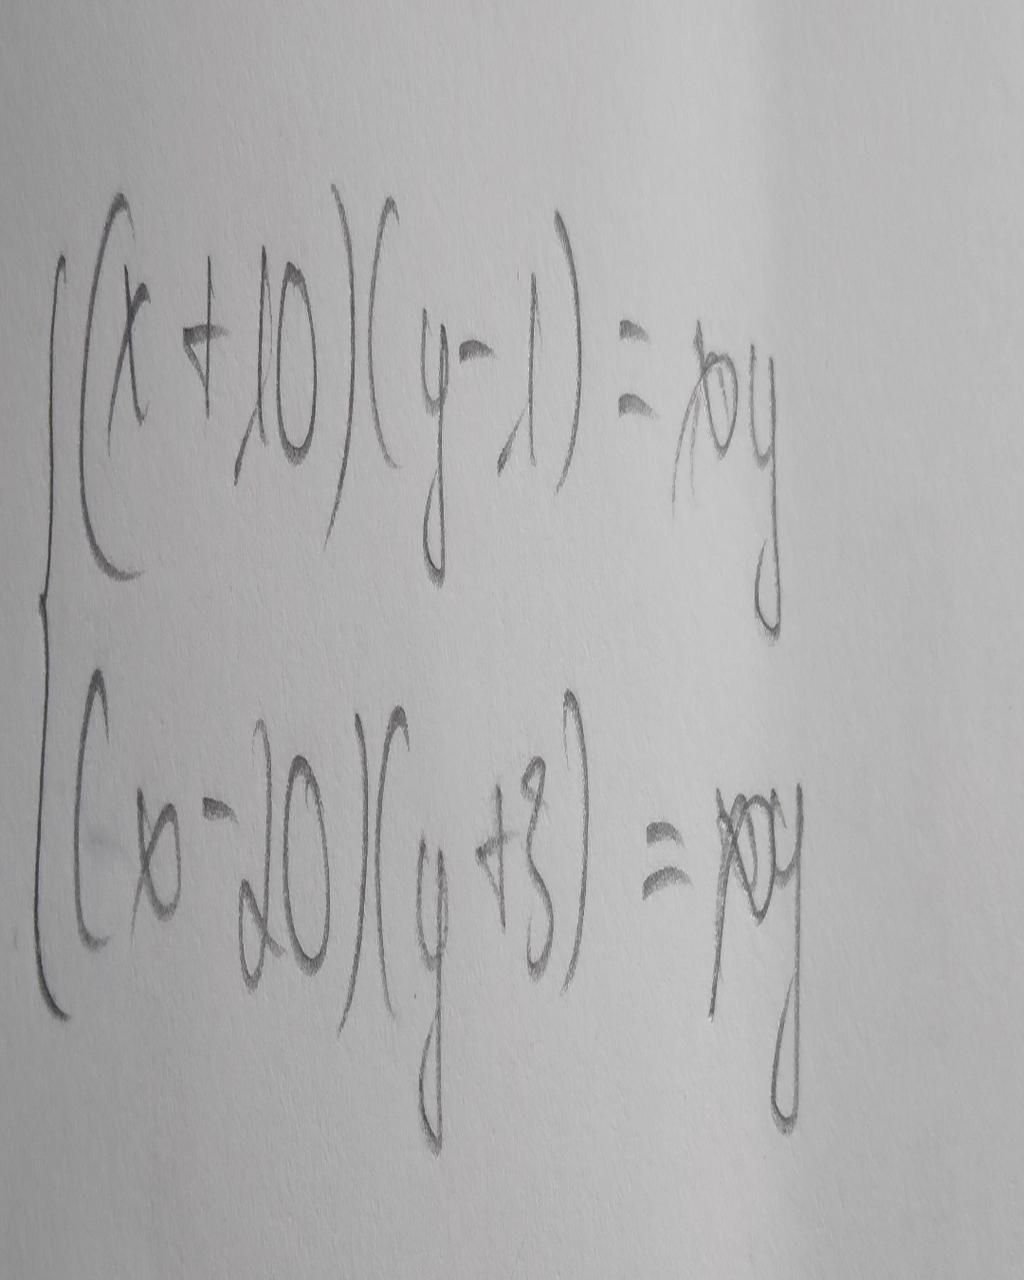 (x+10)(y-1)=xy
(x-20)(y+3)=xy